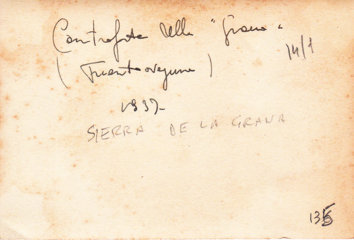 Contrafforte della "Grana"
14/1
(Fuenteovejuna)
1937
SIERRA DE LA GRANA
135